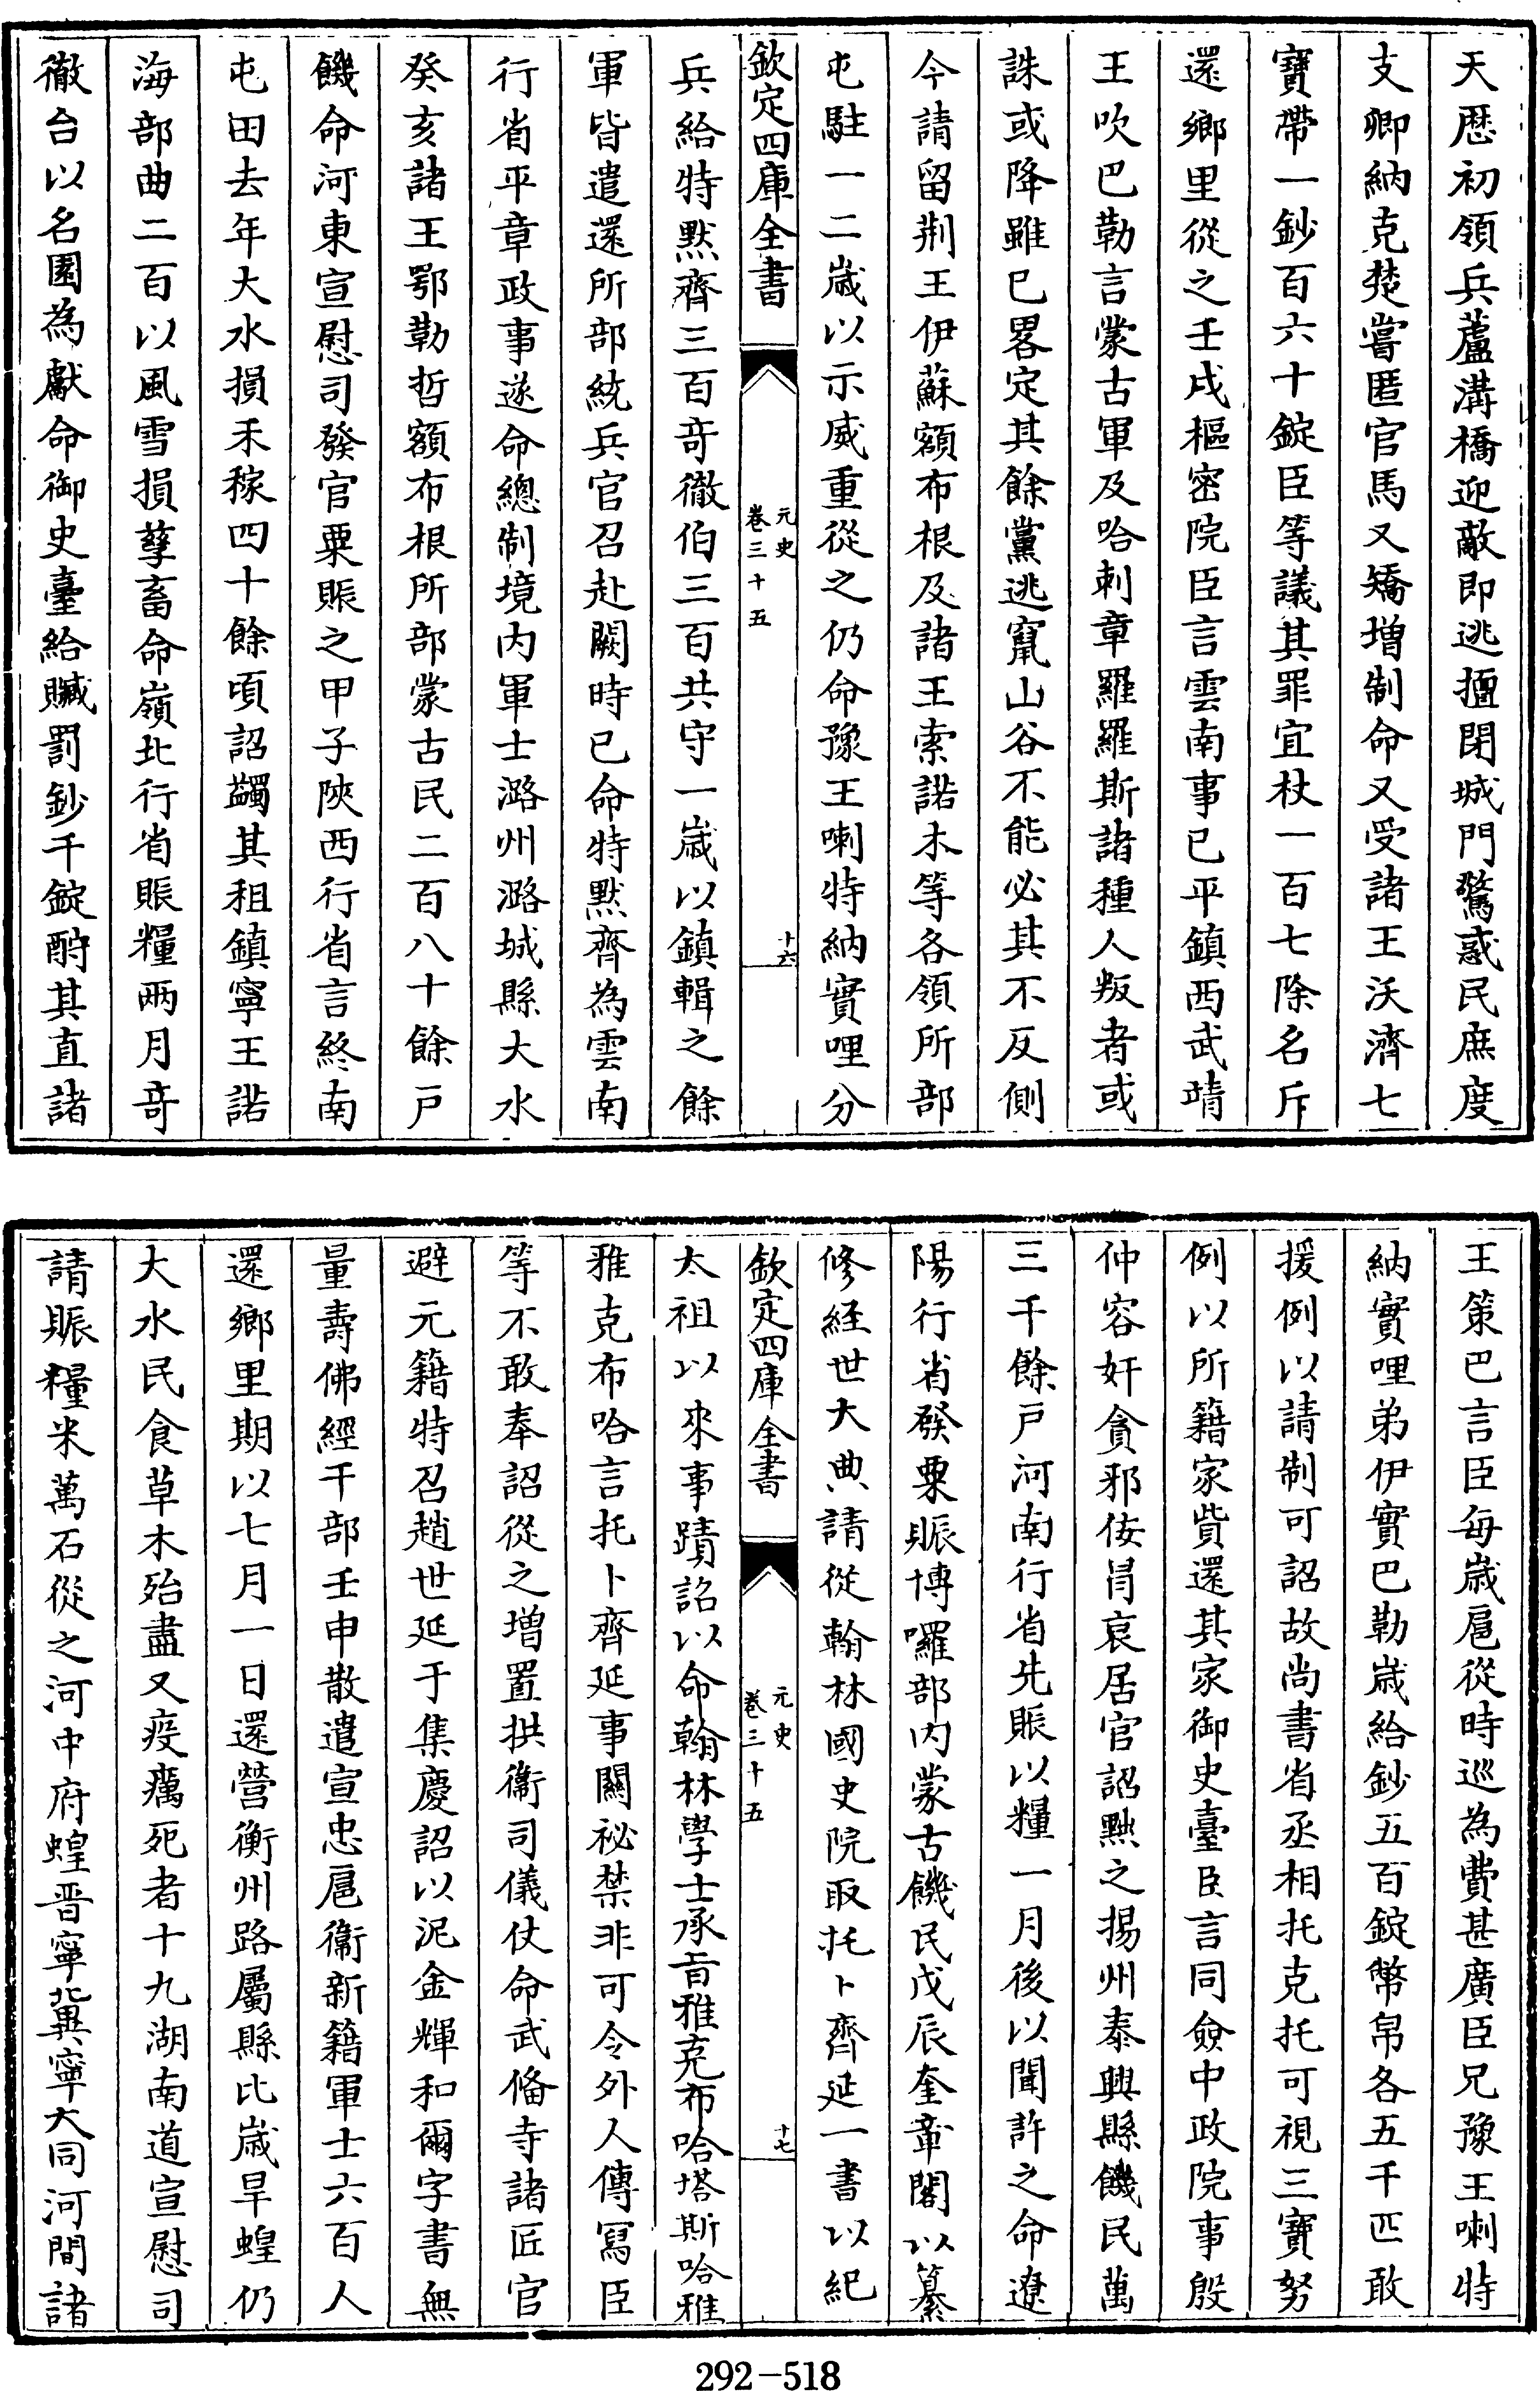 天歴初領兵蘆溝橋迎敵即逃擅閉城門驚惑民庶度
支卿納克楚嘗匿官馬又矯增制命又受諸王沃濟七
寶帶一鈔百六十錠臣等議其罪宜杖一百七除名斥
還鄉里從之壬戌樞密院臣言雲南事已平鎮西武靖
王吹巴勒言蒙古軍及哈刺章羅羅斯諸種人叛者或
誅或降雖已畧定其餘黨逃竄山谷不能必其不反側
今請留荆王伊蘇額布根及諸王索諾木等各領所部
屯駐一二嵗以示威重從之仍命豫王喇特納實哩分
欽定四庫全書
元史
卷三十五
十六
兵給特默齊三百竒徹伯三百共守一嵗以鎮輯之餘
軍皆遣還所部統兵官召赴闕時已命特默齊為雲南
行省平章政事遂命總制境内軍士潞州潞城縣大水
癸亥諸王鄂勒哲額布根所部蒙古民二百八十餘户
饑命河東宣慰司發官粟賑之甲子陜西行省言終南
屯田去年大水損禾稼四十餘頃詔蠲其租鎮寧王諾
海部曲二百以風雪損孳畜命嶺北行省賑糧兩月竒
徹台以名園為獻命御史臺給贓罰鈔千錠酧其直諸
王策巴言臣每嵗扈從時巡為費甚廣臣兄豫王喇特
納實哩弟伊實巴勒嵗給鈔五百錠幣帛各五千匹敢
援例以請制可詔故尚書省丞相托克托可視三寶努
例以所籍家貲還其家御史臺臣言同僉中政院事殷
仲容奸貪邪佞冐哀居官詔黜之揚州泰興縣饑民萬
三千餘户河南行省先賑以糧一月後以聞許之命遼
陽行省發粟賑博囉部内蒙古饑民戊辰奎章閣以纂
修經世大典請從翰林國史院取托卜齊延一書以紀
欽定四庫全書
元史
卷三十五
十七
太祖以來事蹟詔以命翰林學士承旨雅克布哈塔斯哈雅
雅克布哈言托卜齊延事關祕禁非可令外人傳寫臣
等不敢奉詔從之增置拱衞司儀仗命武備寺諸匠官
避元籍特召趙世延于集慶詔以泥金輝和爾字書無
量壽佛經千部壬申散遣宣忠扈衞新籍軍士六百人
還鄉里期以七月一日還營衡州路屬縣比嵗旱蝗仍
大水民食草木殆盡又疫癘死者十九湖南道宣慰司
請賑糧米萬石從之河中府蝗晋寧冀寧大同河間諸